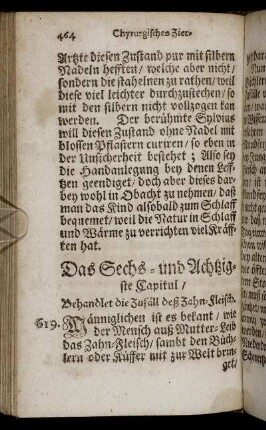 464 Chyrurgisches Zier-
Artzte diesen Zustand nur mit silbern
Nadeln hefften / welche aber nicht /
sondern die stahelnen zu rathen / weil
diese viel leichter durchzustechen / so
mit den silbern nicht vollzogen kan
werden. Der berühmte Sylvius
will diesen Zustand ohne Nadel mit
blossen Pflastern curiren / so eben in
der Unsicherheit bestehet ; Also sey
die Handanlegung bey denen Leff-
tzen geendiget / doch aber dieses dar-
bey wohl in Obacht zu nehmen / daß
man das Kind alsobald zum Schlaff
bequemet / weil die Natur in Schlaff
und Wärme zu verrichten viel Kräff-
ten hat.
Das Sechs- und Achtzig-
ste Capitul /
Behandlet die Zufäll deß Zahn-Fleisch.
619. Männiglichen ist es bekant / wie
der Mensch auß Mutter-Leib
das Zahn-Fleisch / sambt den Büch-
lern oder Küffer mit zur Welt brin-
get /